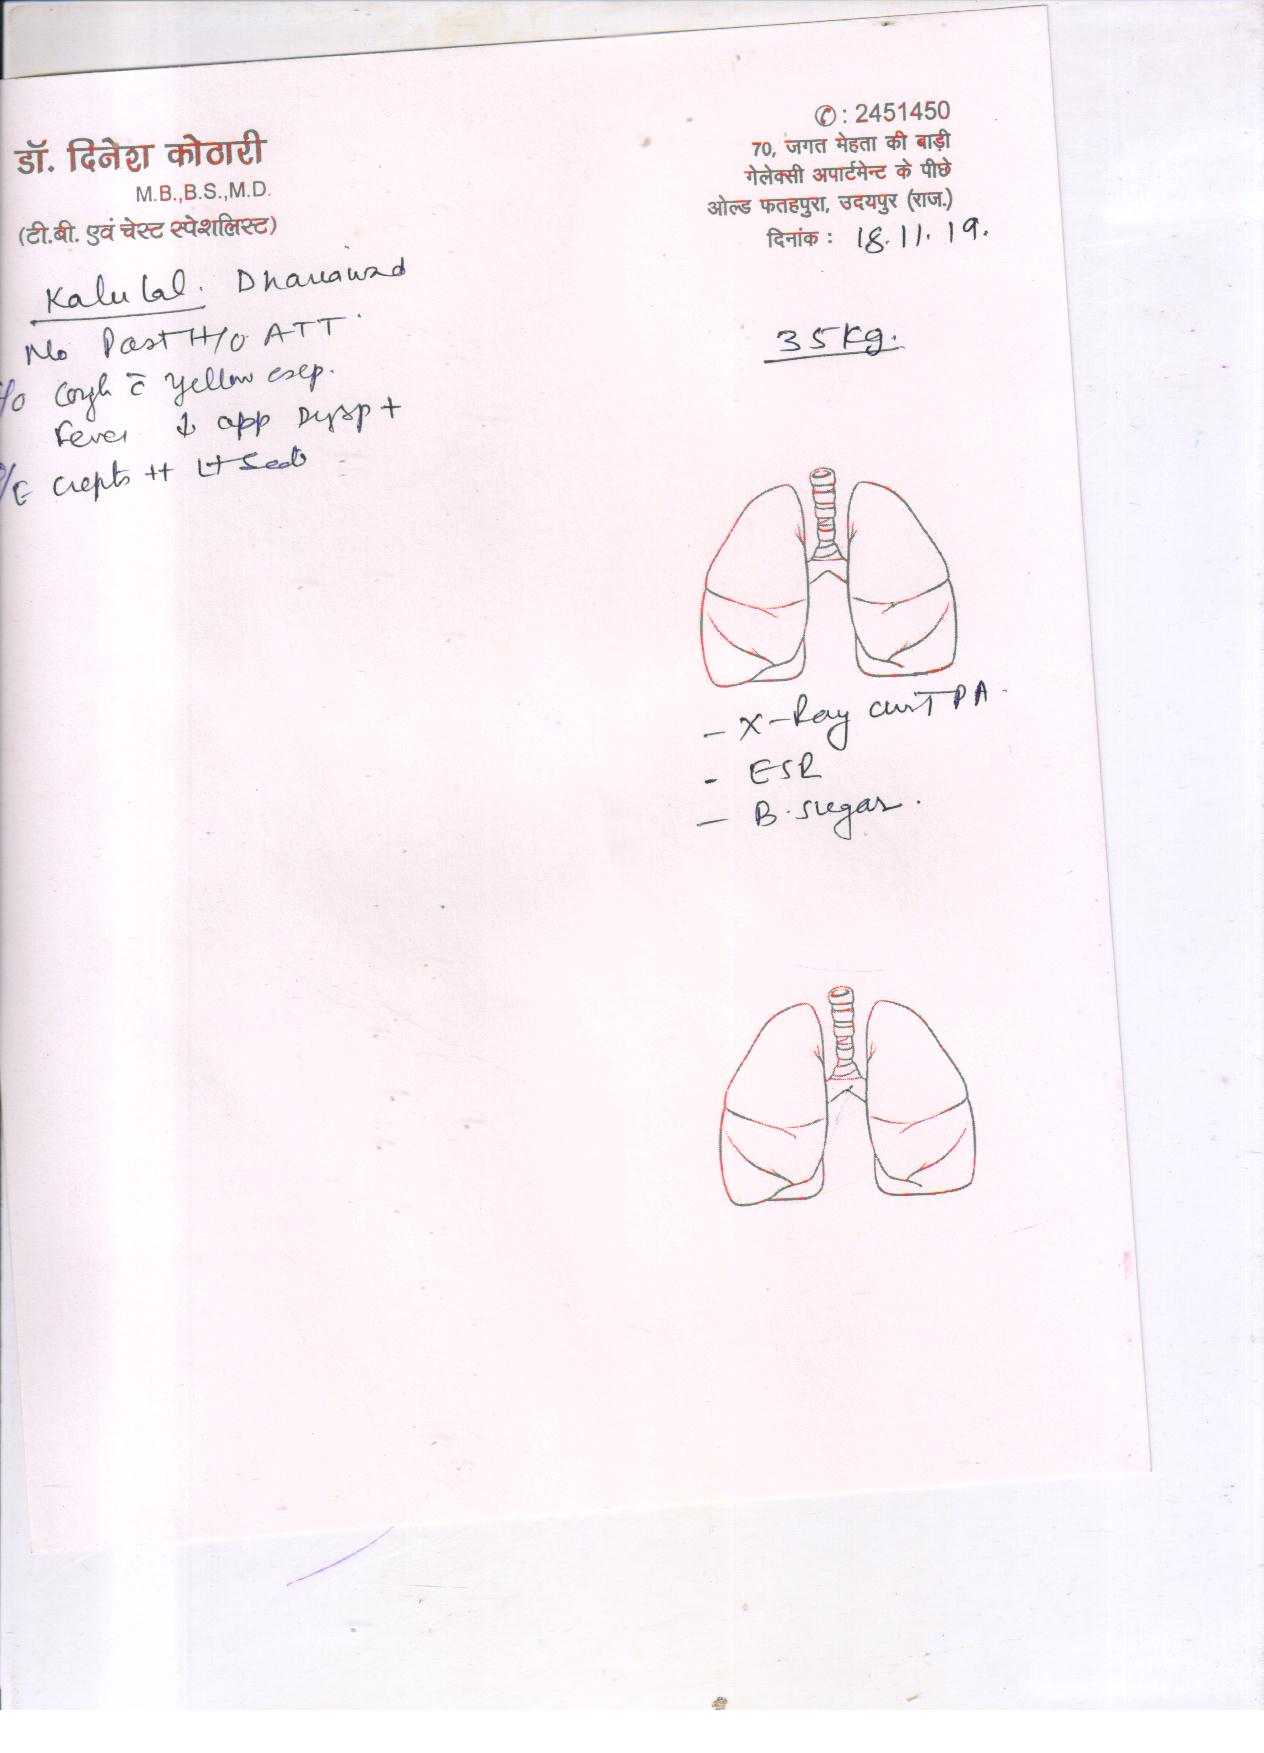 ✆: 2451450
डॉ. दिनेश कोठारी
M.B.,B.S.,M.D.
(टी.बी. एवं चेस्ट स्पेशलिस्ट)
70, जगत मेहता की बाड़ी
गेलेक्सी अपार्टमेन्ट के पीछे
ओल्ड फतहपुरा, उदयपुर (राज.)
दिनांक : 18.11.19.
Kalu Lal. Dhariawad
No Past H/o ATT.
/o Cough c̄ Yellow exp.
Fever ↓ app Dysp +
/E Crepts ++ Lt
35 Kg.
- X-Ray PA.
- ESR
- B. sugar.